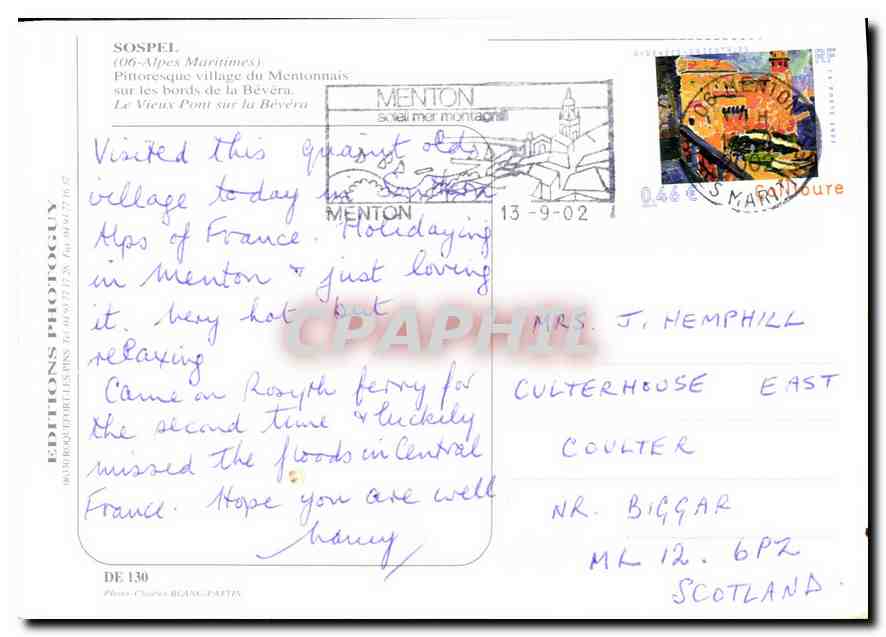 SOSPEL
(06-Alpes Maritimes)
Pittoresque village du Mentonnais
sur les bords de la Bévéra.
Le Vieux Pont sur la Bévéra
MENTON
soleil mer montagne
MENTON
13-9-02
06 MENTON
S MARIT
RF
LA POSTE 2002
0,46 €
Collioure
Visited this quaint olds
village today in Southern
Alps of France. Holidaying
in Menton & just loving
it. Very hot but
relaxing
Came on Rosyth ferry for
the second time & luckily
missed the floods in Central
France. Hope you are well
Nancy
MRS. J. HEMPHILL
CULTERHOUSE EAST
COULTER
NR. BIGGAR
ML 12. 6PZ
SCOTLAND.
CPAPHIL
EDITIONS PHOTOGUY
06330 ROQUEFORT-LES-PINS Tél 04 93 77 17 28 Fax 04 93 77 16 67
DE 130
Photo Charles BIANC-PATTIN